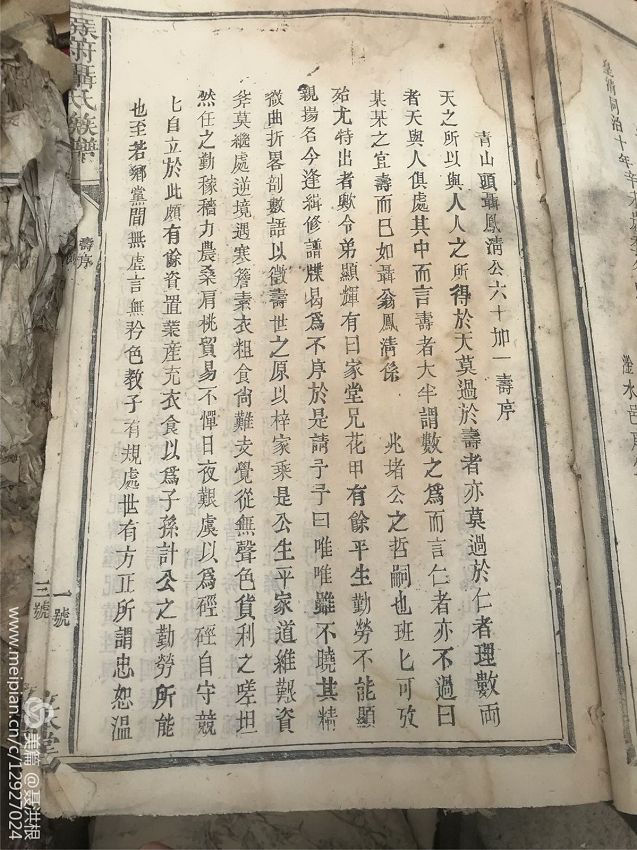 皇清同治十年辛未
澂水邑
青山頭聶鳳淸公六十加一壽序
天之所以與人人之所得於天莫過於壽者亦莫過於仁者理數両
者天與人俱處其中而言壽者大半謂數之爲而言仁者亦不過曰
某某之宜壽而已如聶翁鳳淸係 兆堵公之哲嗣也班匕可攷
殆尤特出者歟令弟顯輝有曰家堂兄花甲有餘平生勤勞不能顯
親揚名今逢緝修譜牒曷爲不序於是請予予曰唯唯雖不曉其精
微曲折畧剖數語以徵壽世之原以梓家乘是公生平家道維艱資
斧莫繼處逆境遇寒簷素衣粗食尙難支覺從無聲色貨利之嗟坦
然任之勤稼穡力農桑肩桃貿易不憚日夜艱虞以爲硜硜自守競
匕自立於此頗有餘資置業產充衣食以爲子孫計公之勤勞所能
也至若鄉黨間無虛言無矜色教子有規處世有方正所謂忠恕溫
聶氏族譜
壽序
一號
三號
堂
www.meipian.cn/c/12927024
美篇 @聂洪根